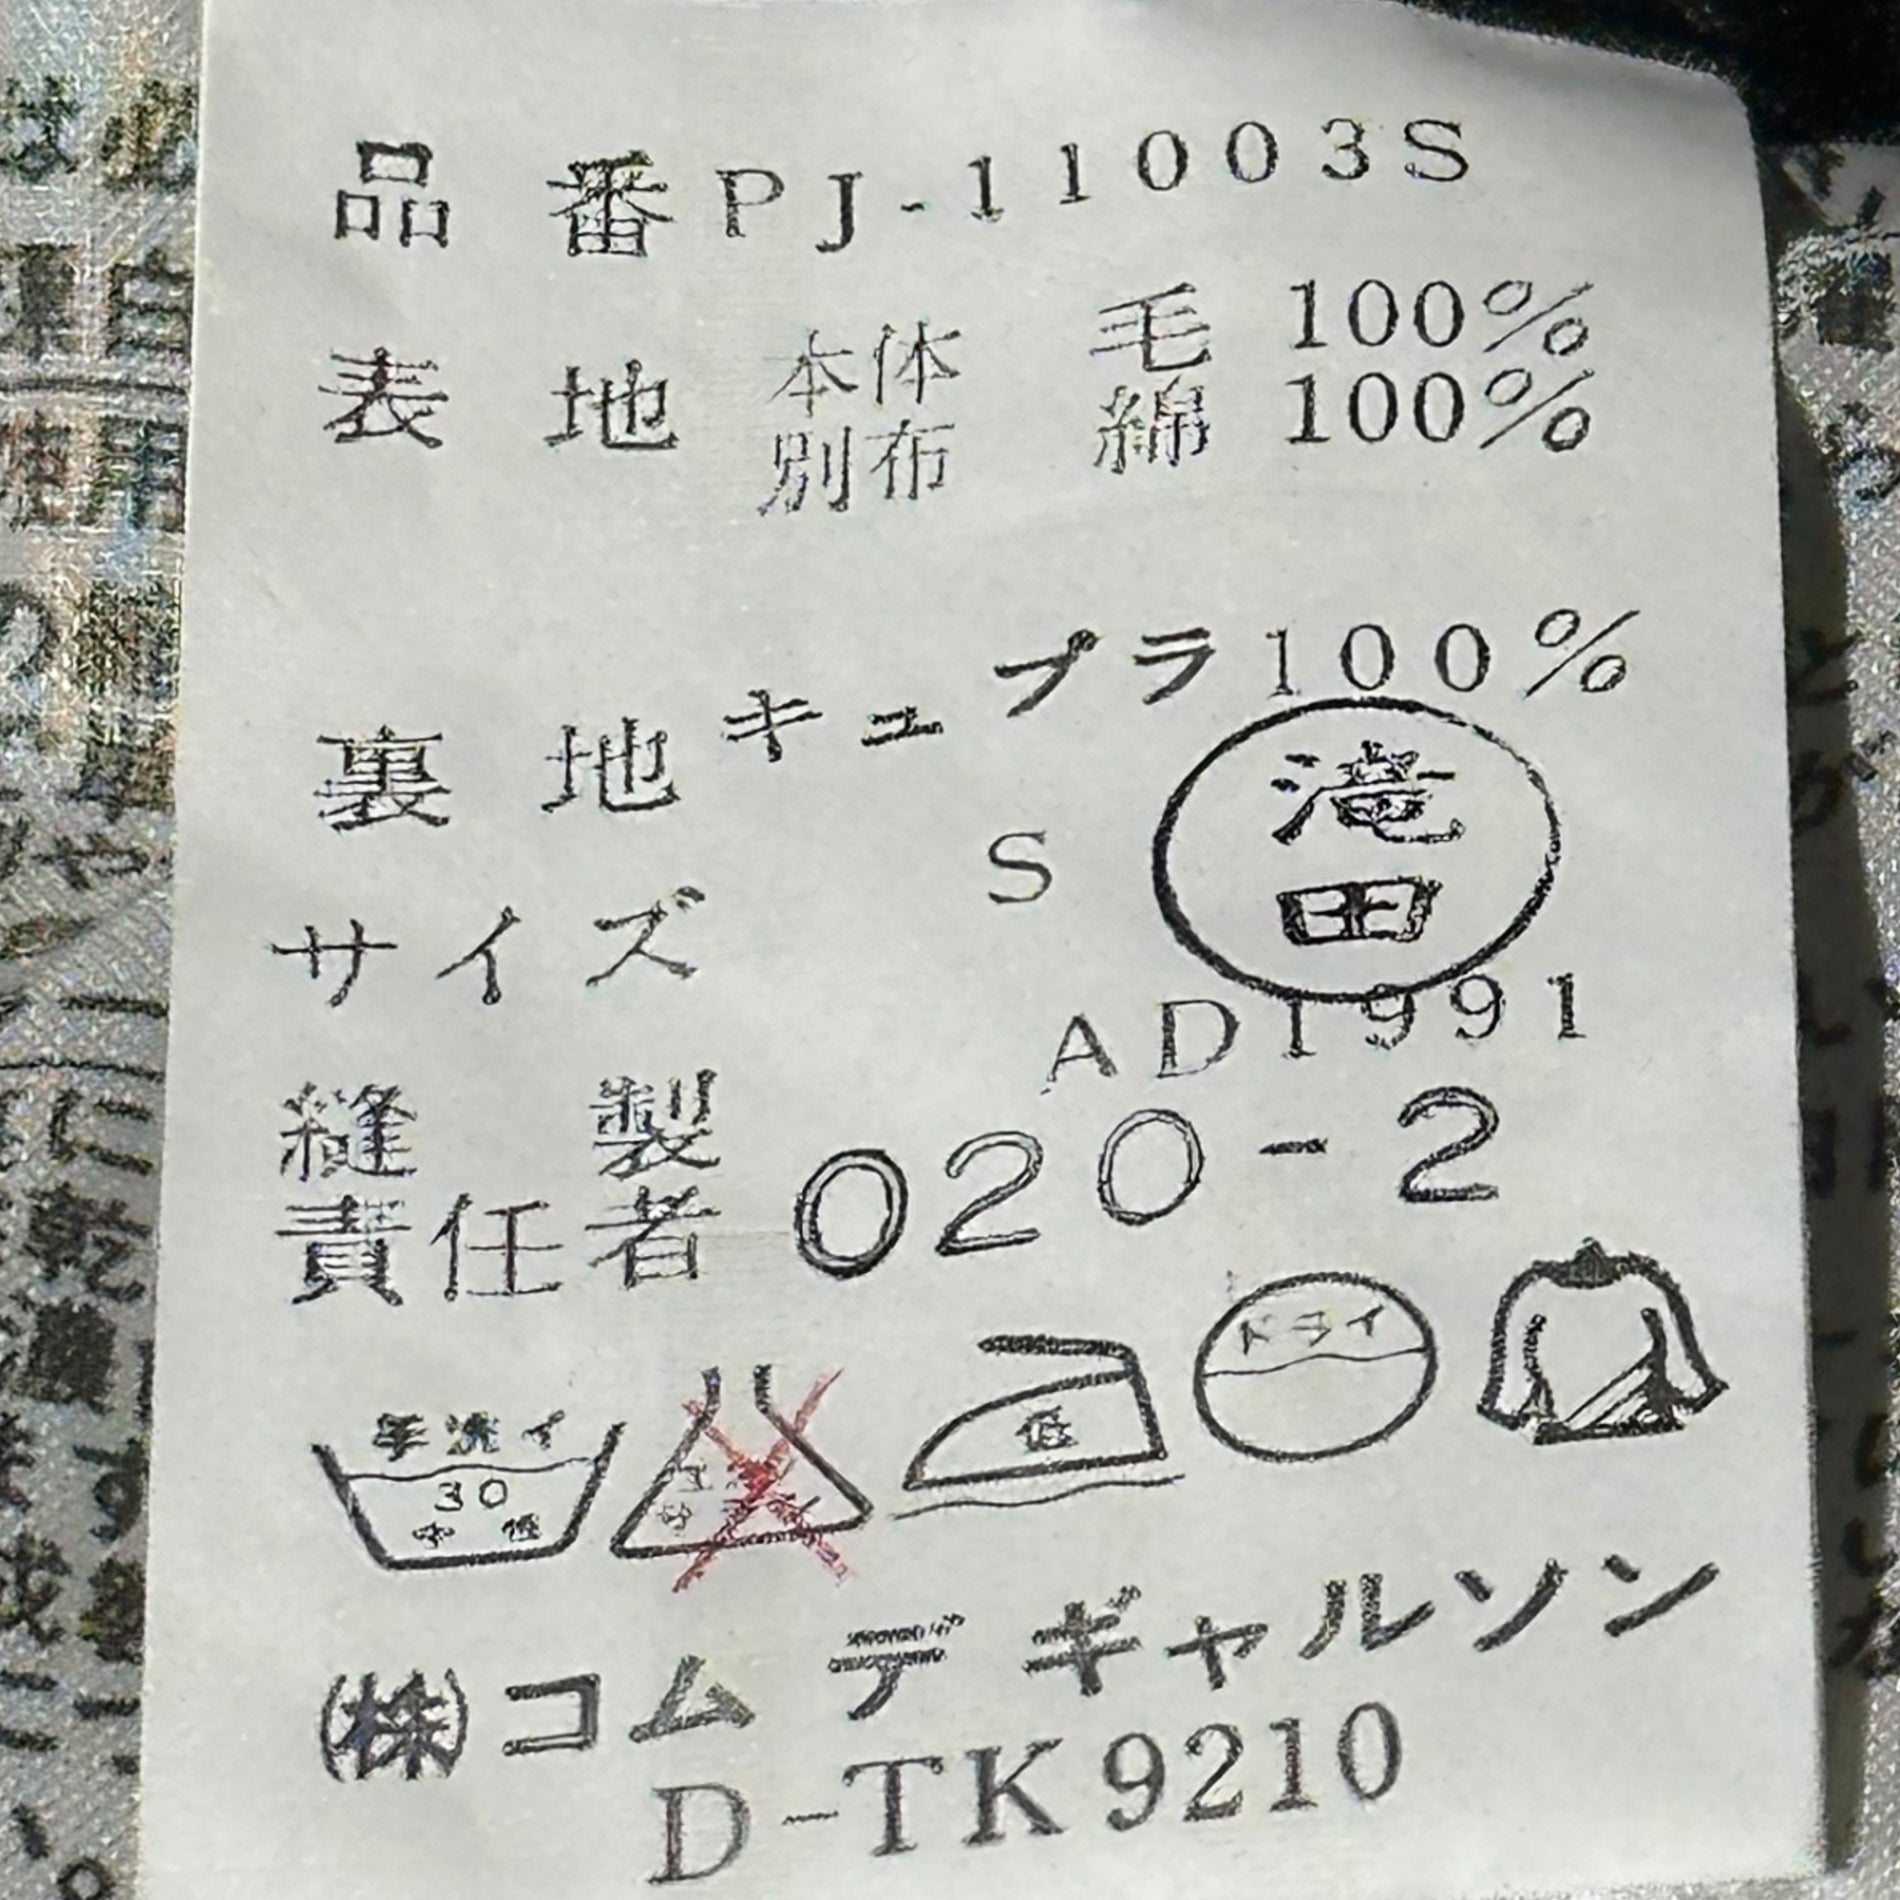 品番PJ-11003S
表地 本体 毛 100%
別布 綿 100%
裏地キュプラ100%
サイズ S
滝田
AD1991
縫製
責任者 020-2
手洗イ
30
中性
低
ドライ
㈱コム デ ギャルソン
D-TK9210